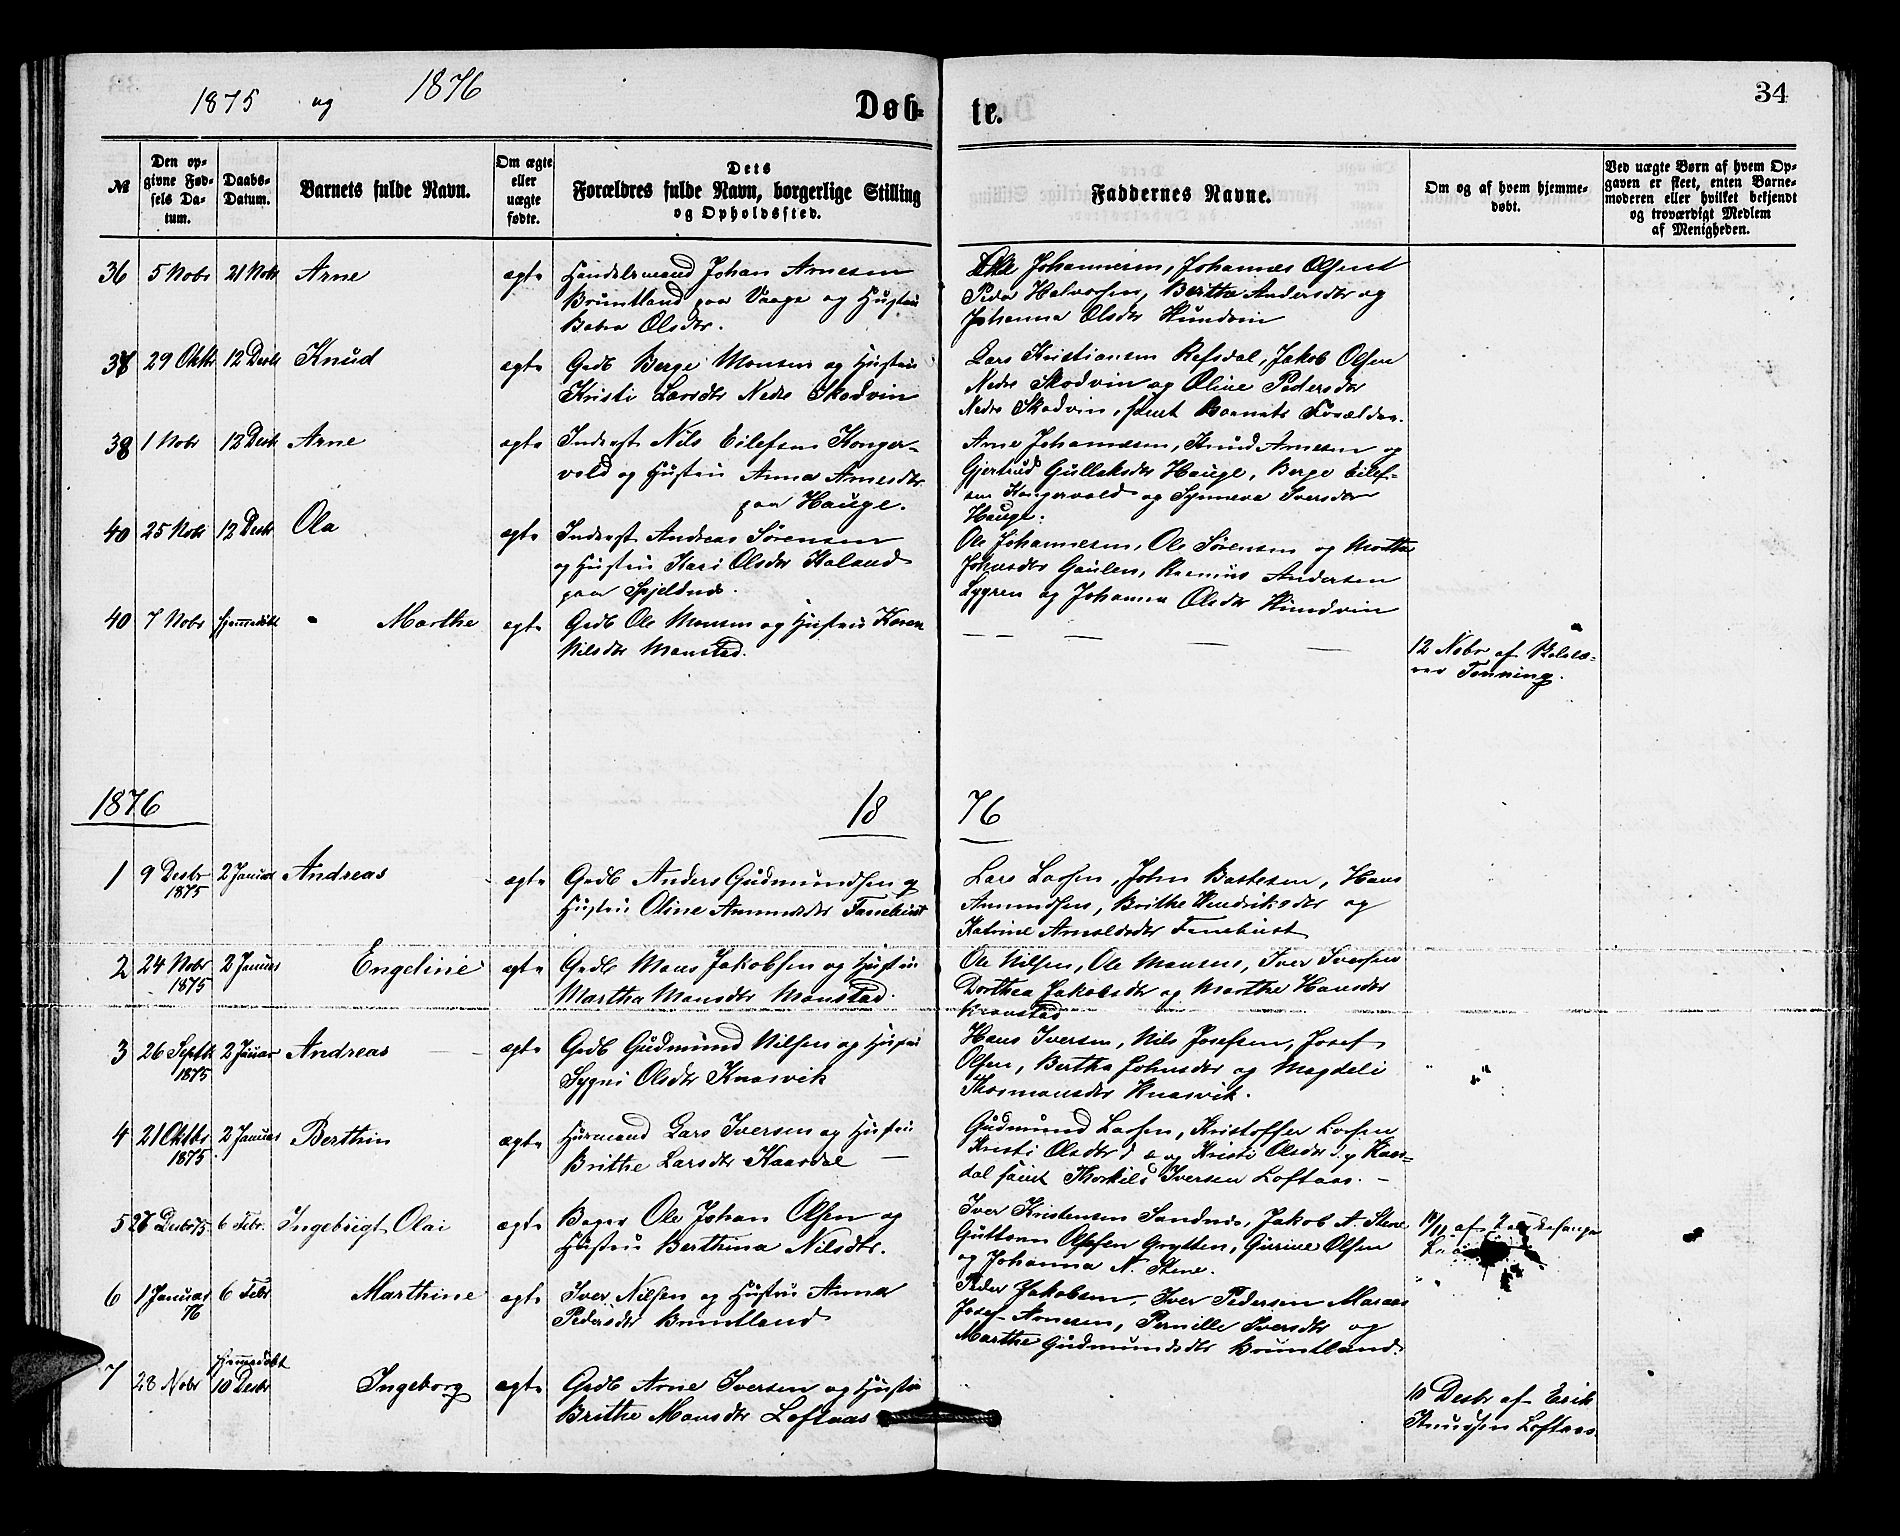 1875 og 1876
Døb-te.
34
№
Den opgivne Fødsels Datum.
Daabs-Datum.
Barnets fulde Navn.
Om ægte eller uægte fødte.
Dets Forældres fulde Navn, borgerlige Stilling og Opholdssted.
Faddernes Navne.
Om og af hvem hjemmedøbt.
Ved uægte Børn af hvem Opgaven er skeet, enten Barnemoderen eller hvilket bekjendt og troværdigt Medlem af Menigheden.
36 5 Nobr 21 Nobr Arne ægte Handelsmand Johan Arnesen
Bruntland paa Vaage og Hustru
Olsdtr.
Johannesen, Johannes Olsen
Peder Halvorsen, Berthe Andersdtr og
Johanna Olsdtr Hundvin
38 29 Oktb 12 Desb Knud ægte Grdb Berge Monsen og Hustru
Kristi Larsdtr Nedre Skodvin
Lars Kristiansen Refsdal, Jakob Olsen
Nedre Skodvin og Oline Pedersdtr
Nedre Skodvin, samt Barnets Forældre.
38 1 Nobr 12 Desb Arne ægte Inderst Nils Eilefsen Konger-
vold og Hustru Anna Arnesdtr
paa Hauge.
Arne Johannesen, Knud Arnesen og
Gjertrud Gulleksdtr Hauge, Berge Eilef-
sen Kongervold og Synneva Iversdtr
Hauge.
40 25 Nobr 12 Desb Ola ægte Inderst Andreas Sørensen
og Hustru Kari Olsdtr Haland
paa Spjeldnes.
Ole Johannesen, Ole Sørensen og Marthe
Johnsdtr Gaulen, Rasmus Andersen
Lygren og Johanna Olsdtr Hundvin
40 7 Nobr Hjemmedøbt Marthe ægte Grdb Ole Monsen og Hustru Karen
Nilsdtr Monstad.
12 Nobr af
Tonning.
1876
18 76
1 9 Desbr 1875 2 Januar Andreas ægte Grdb Anders Gudmundsen og
Hustru Oline Fanebust
Lars Larsen, John Bastesen, Hans
Amundsen, Brithe Hendriksdtr og
Katrine Arnoldsdtr Fanebust
2 24 Nobr 1875 2 Januar Engeline ægte Grdb Mons Jakobsen og Hustru
Martha Monsdtr Monstad.
Ole Nilsen, Ole Monsen, Iver Iversen
Dorthea Jakobsdtr og Marthe Hansdtr
Monstad
3 26 Septb 1875 2 Januar Andreas ægte Grdb Gudmund Nilsen og Hustru
Sygni Olsdtr Knarvik
Hans Iversen, Nils Josefsen, Josef
Olsen, Bertha Johnsdtr og Magdeli
Thormonsdtr Knarvik.
4 21 Oktbr 1875 2 Januar Berthin ægte Husmand Lars Iversen og Hustru
Brithe Larsdtr Kaardal
Gudmund Larsen, Kristoffer Larsen
Kristi Olsdtr d. æ og Kristi Olsdtr d. y Kaar-
dal samt Thorkild Iversen Loftaas.
5 28 Desbr 75 6 Febr. Ingebrigt Olai ægte Bager Ole Johan Olsen og
Hustru Berthina Nilsdtr.
Iver Kristensen Sandnes, Jakob N. Stene
Guttorm Olsen Grytten, Gurine Olsen
og Johanna N. Stene.
af
6 1 Januar 76 6 Febr Marthine ægte Iver Nilsen og Hustru Anna
Pedersdtr Bruntland
Peder Jakobsen, Iver Pedersen Maraas
Josef Arnesen, Pernille Iversdtr og
Marthe Gudmundsdtr Bruntland.
7 28 Nobr Hjemmedøbt 10 Desbr Ingeborg ægte Grdb Arne Iversen og Hustru
Brithe Monsdtr Loftaas
10 Desbr af Erik
Knudsen Loftaas.